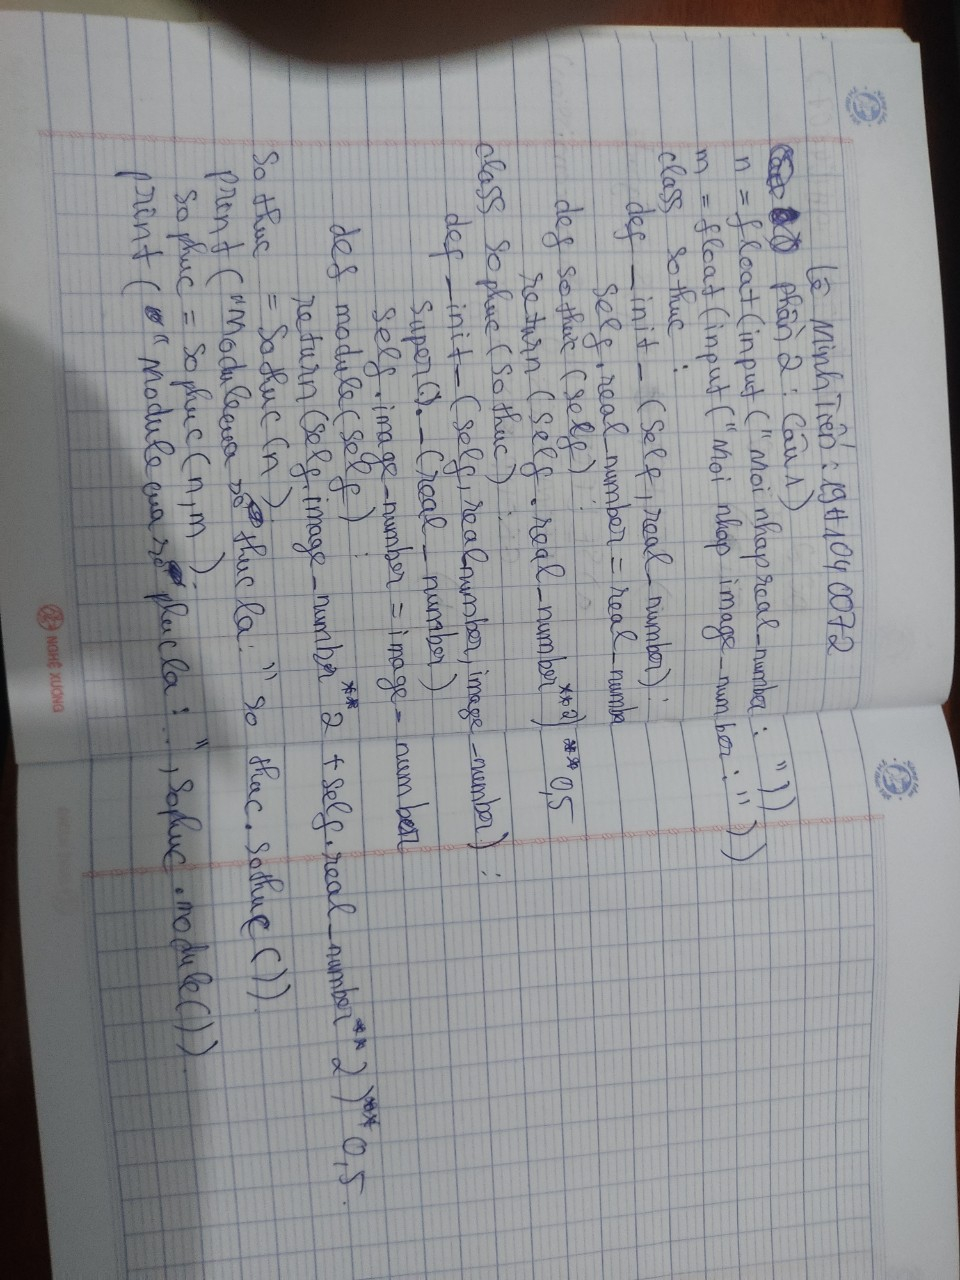 Lê Minh Tiến : 19H1040072
Phần 2 : Câu 1)
n = float(input("Moi nhap real_number : "))
m = float(input("Moi nhap image_number : "))
class sothuc :
def _init_ (self, real_number) :
self.real_number = real_numbe
def sothuc (self) :
return (self.real_number**2)**0,5
class sophuc(sothuc) :
def _init_ (self, real_number, image_number) :
super()._(real_number)
self.image_number = image_number
def module(self) :
return(self.image_number**2 + self.real_number**2)**0,5.
sothuc = sothuc(n)
print("Module cua so thuc la: " so thuc.sothuc()).
sophuc = sophuc(n,m)
print("Module cua so phuc la : ", sophuc.module()).
NGHÊ XUONG